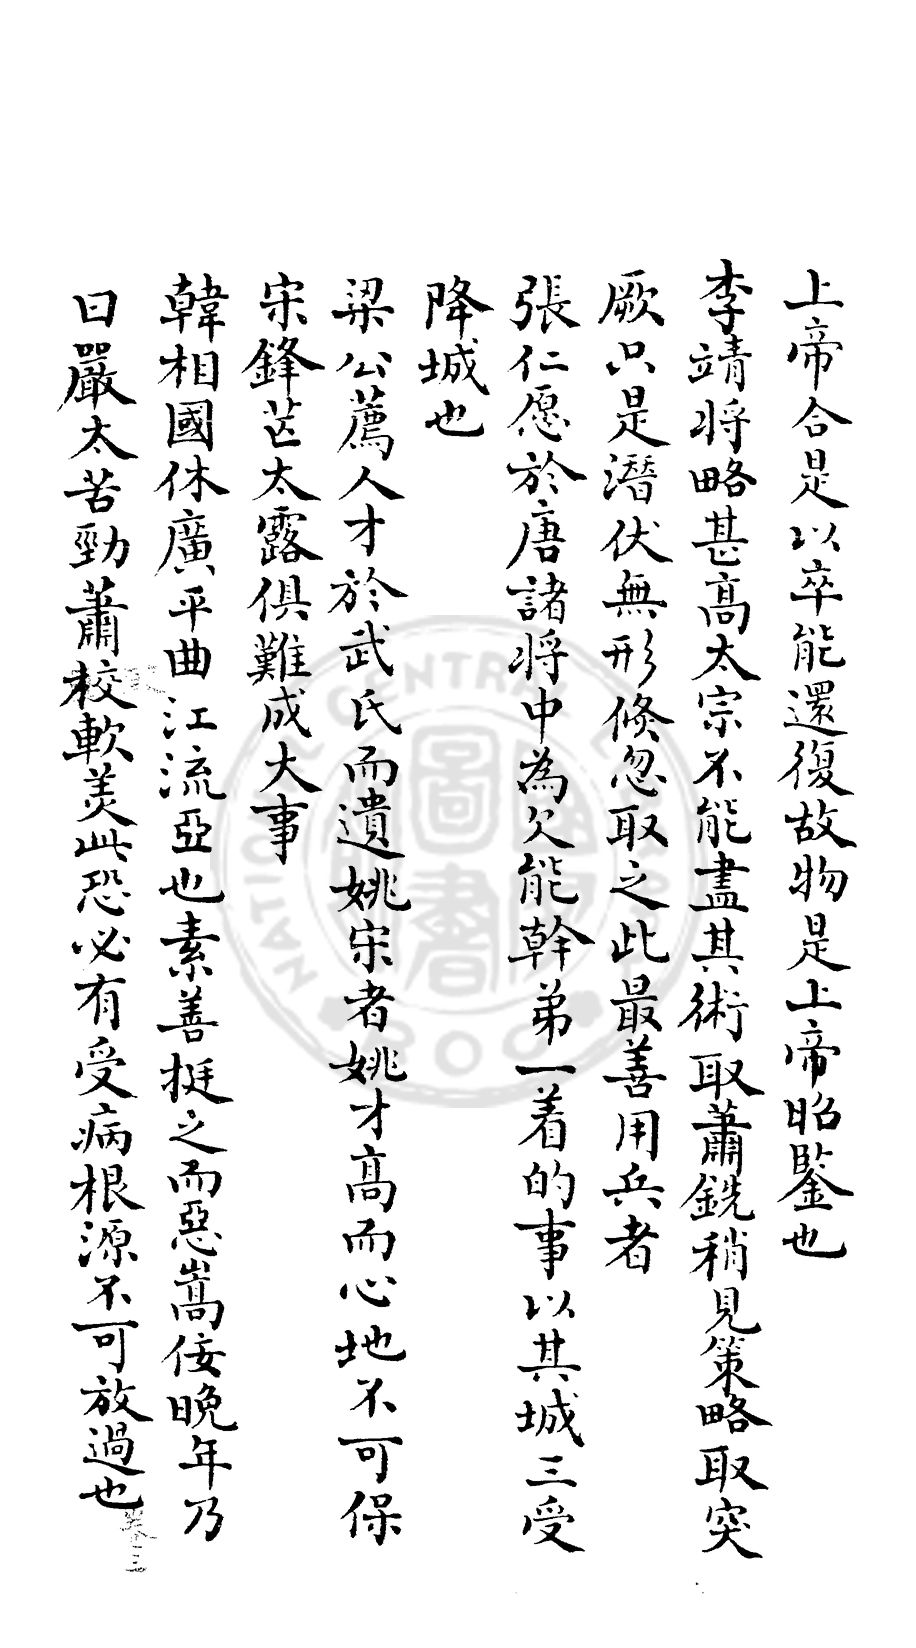 上帝合是以卒能還復故物是上帝昭鑒也
李靖将略甚高太宗不能盡其術取蕭銑稍見策略取突
厥只是潛伏無形倐忽取之此最善用兵者
張仁愿於唐諸将中為欠能幹弟一着的事以其城三受
降城也
梁公薦人才於武氏而遺姚宋者姚才高而心地不可保
宋鋒芒太露俱難成大事
韓相國休廣平曲江流亞也素善挺之而惡嵩佞晚年乃
曰嚴太苦勁蕭較軟美此恐必有受病根源不可放過也
NATIONAL CENTRAL LIBRARY
圖書